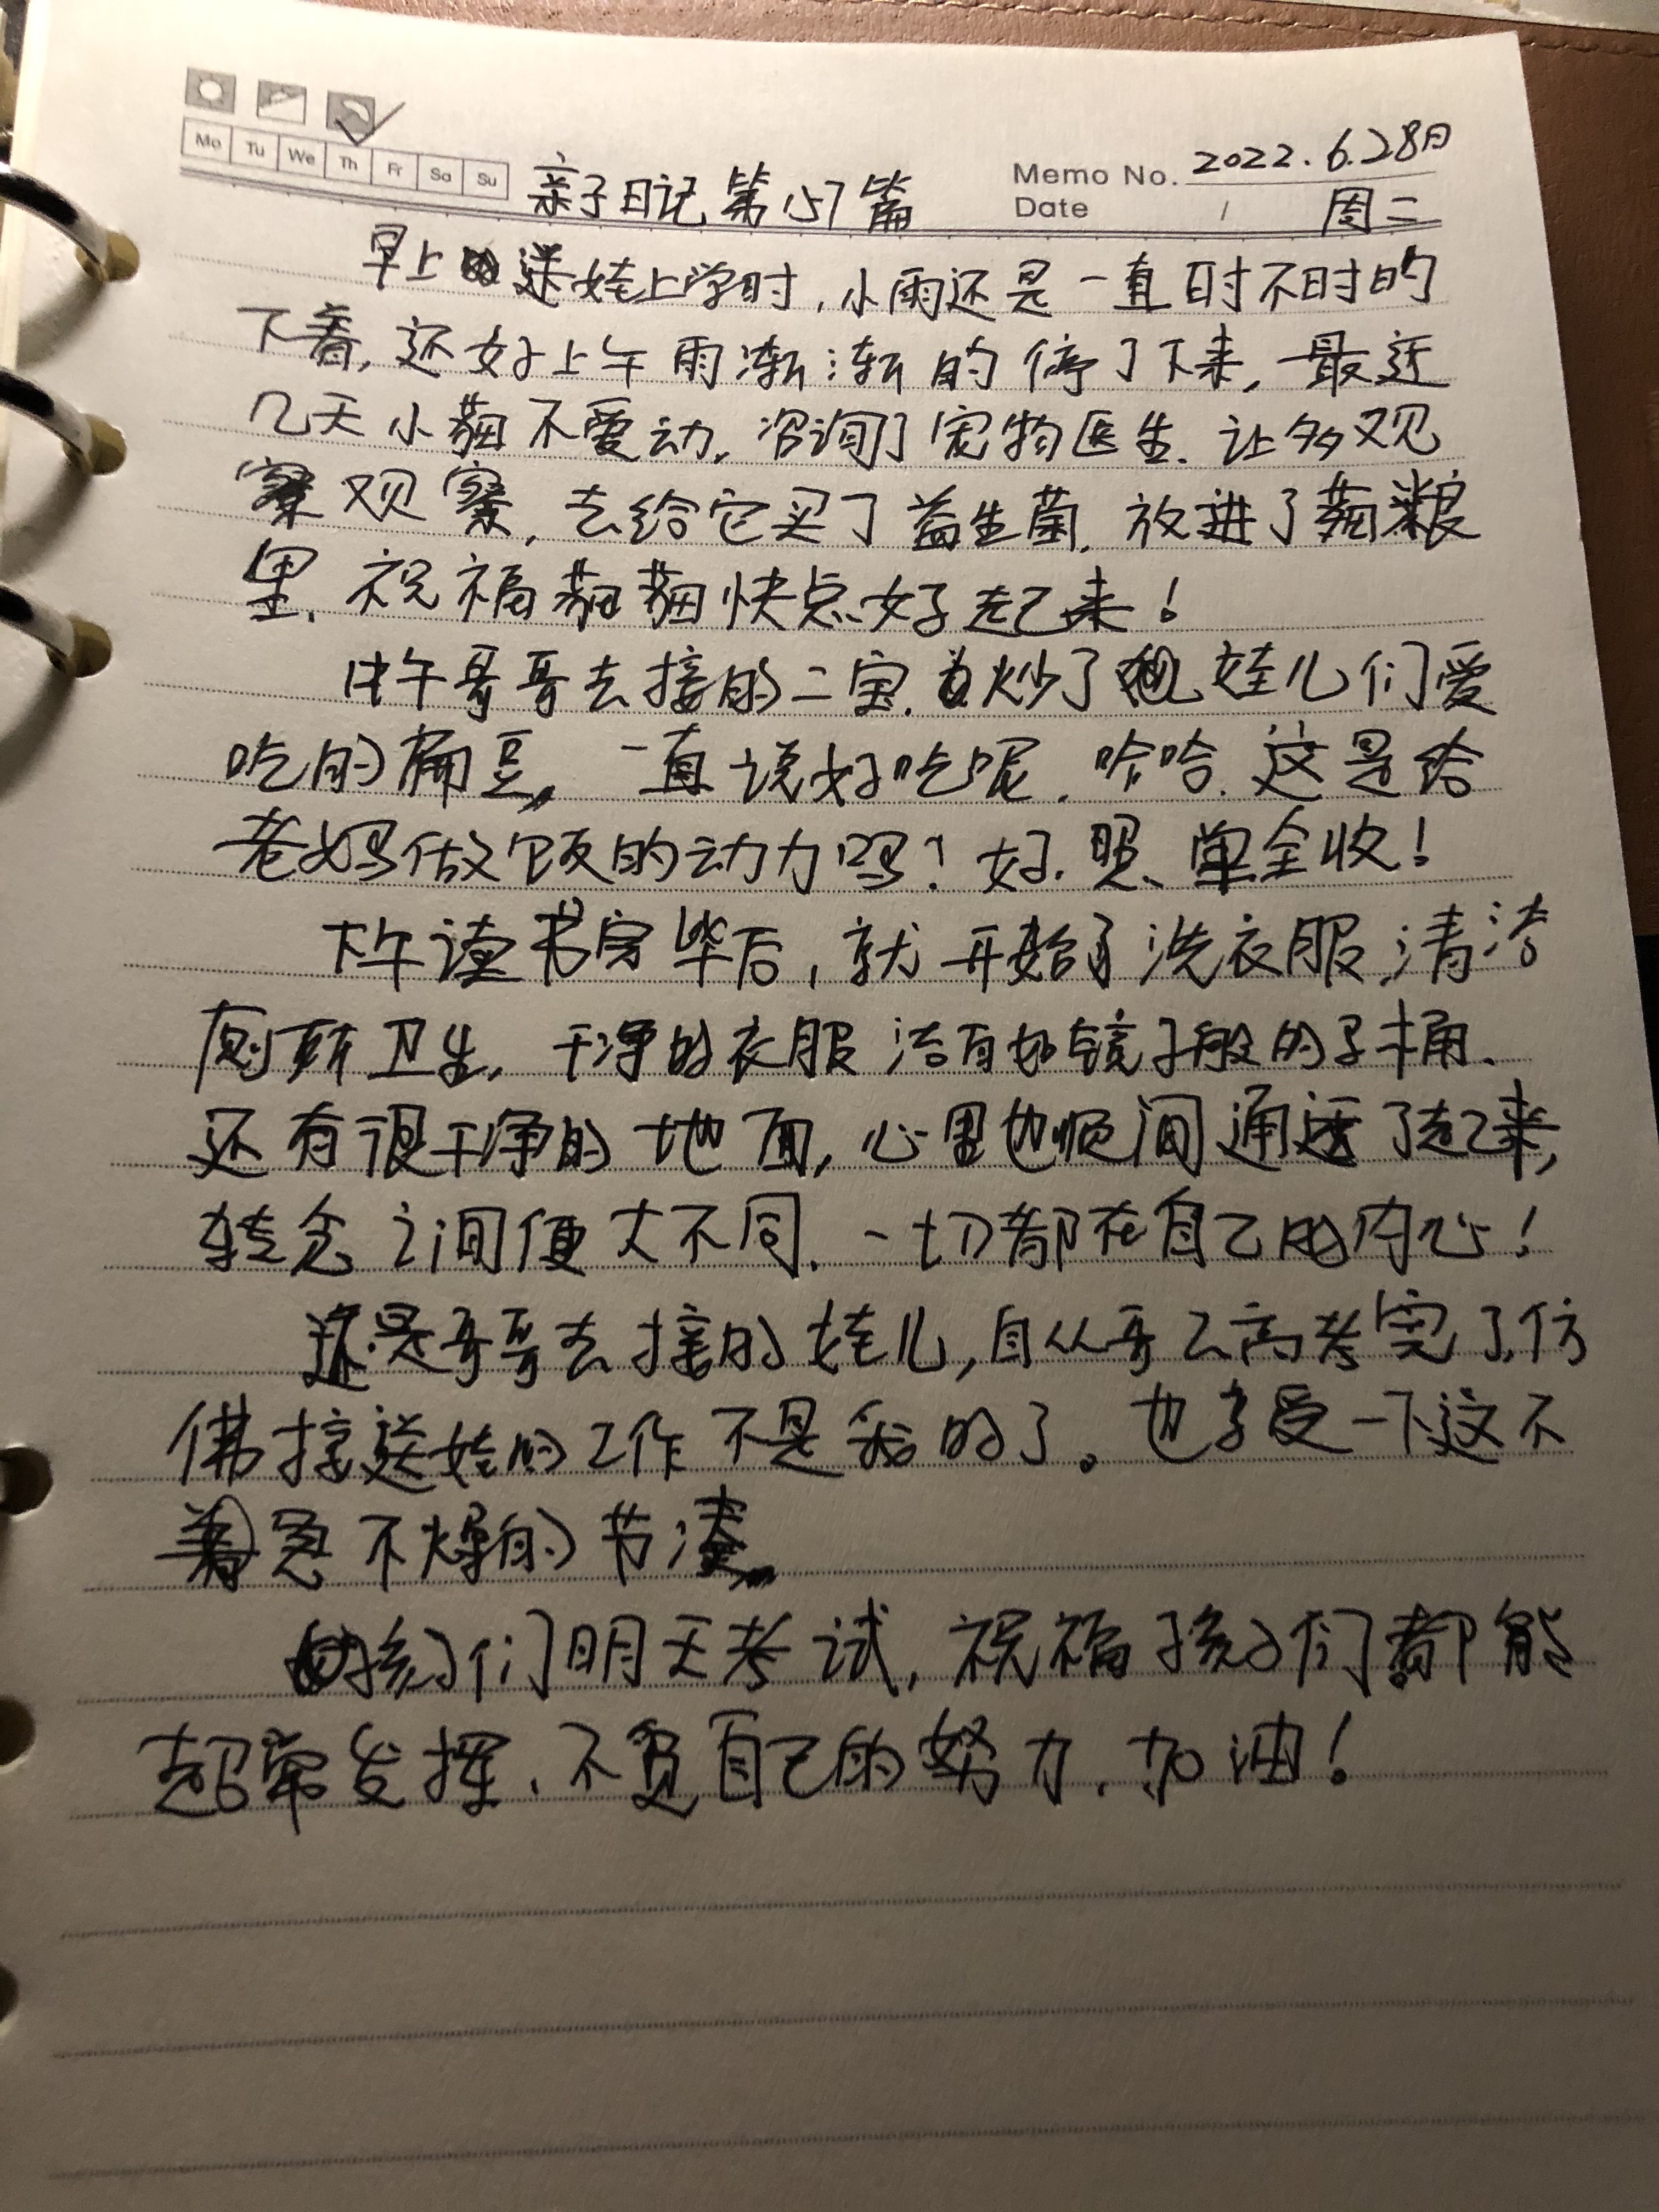 Mo Tu We Th Fr Sa Su
亲子日记第157篇
Memo No. 2022.6.28日
Date / 周二
早上送娃上学时,小雨还是一直时不时的
下着,还好上午雨渐渐的停了下来,最近
几天小猫不爱动,咨询了宠物医生.让多观
察观察,去给它买了益生菌,放进了猫粮
里.祝福猫猫快点好起来!
中午哥哥去接的二宝.炒了娃儿们爱
吃的扁豆,一直说好吃呢.哈哈.这是给
老妈做饭的动力吗?好.照单全收!
下午读书完毕后,就开始了洗衣服,清洁
厕所卫生,干净的衣服洁白如镜子般的马桶.
还有很干净的地面,心里也顺间通透了起来,
转念之间便大不同.一切都在自己的内心!
还是哥哥去接的娃儿,自从哥哥高考完了,仿
佛接送娃的工作不是我的了。也享受一下这不
着急不燥的节凑。
孩子们明天考试,祝福孩子们都能
超常发挥.不负自己的努力,加油!